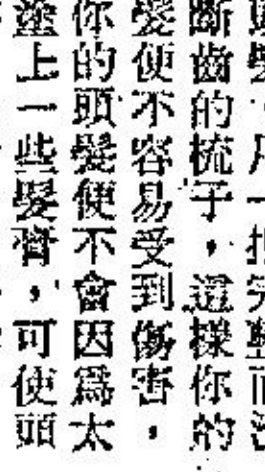 斷齒的梳子，這樣你的
髮便不容易受到傷害，
你的頭髮便不會因爲太
塗上一些髮膏，可使頭